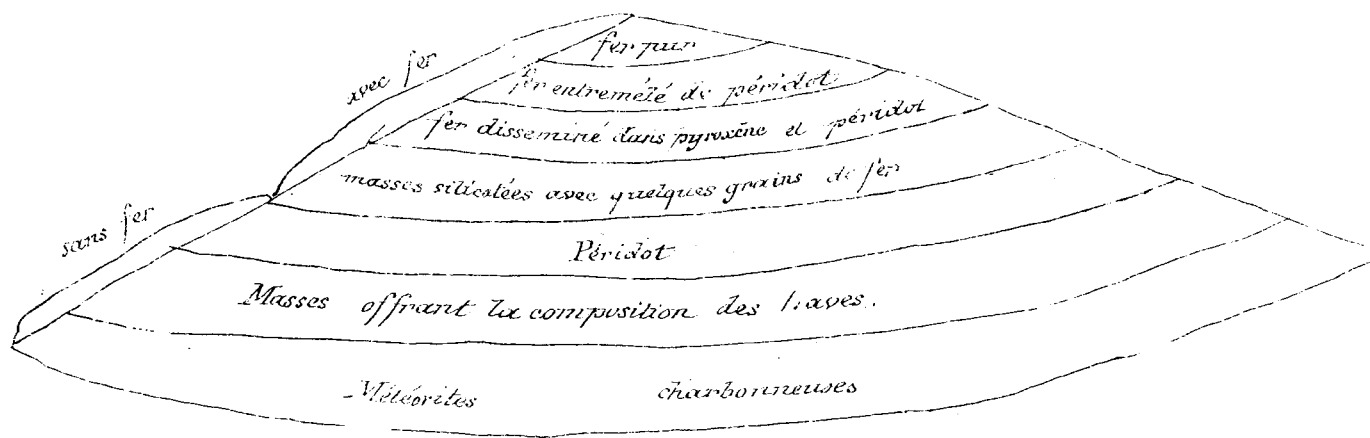 fer pur
fer entremêlé de péridot
fer disseminé dans pyroxène et péridot
masses silicatées avec quelques grains de fer
Péridot
Masses offrant la composition des laves.
Météorites charbonneuses
avec fer
sans fer